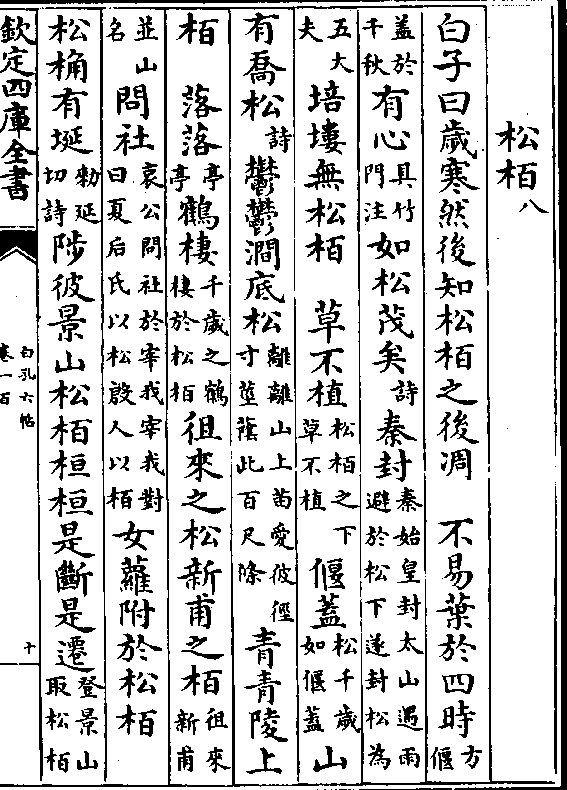 松栢八
白子曰歲寒然後知松栢之後凋　不易葉於四時方偃
盖於千秋有心具竹門注如松茂矣詩秦封秦始皇封太山遇雨避於松下遂封松為
五大夫培塿無松栢　草不植松栢之下草不植偃蓋松千歲如偃蓋山
有喬松詩鬱鬱澗底松離離山上苗愛彼徑寸莖蔭此百尺條青青陵上
栢　落落亭亭鶴棲千歲之鶴棲於松栢徂來之松新甫之栢徂來新甫
並山名問社哀公問社於宰我宰我對曰夏后氏以松殷人以栢女蘿附於松栢
松桷有梴勑延切詩陟彼景山松栢桓桓是斷是遷登景山取松栢
欽定四庫全書
白孔六帖
卷一百
十